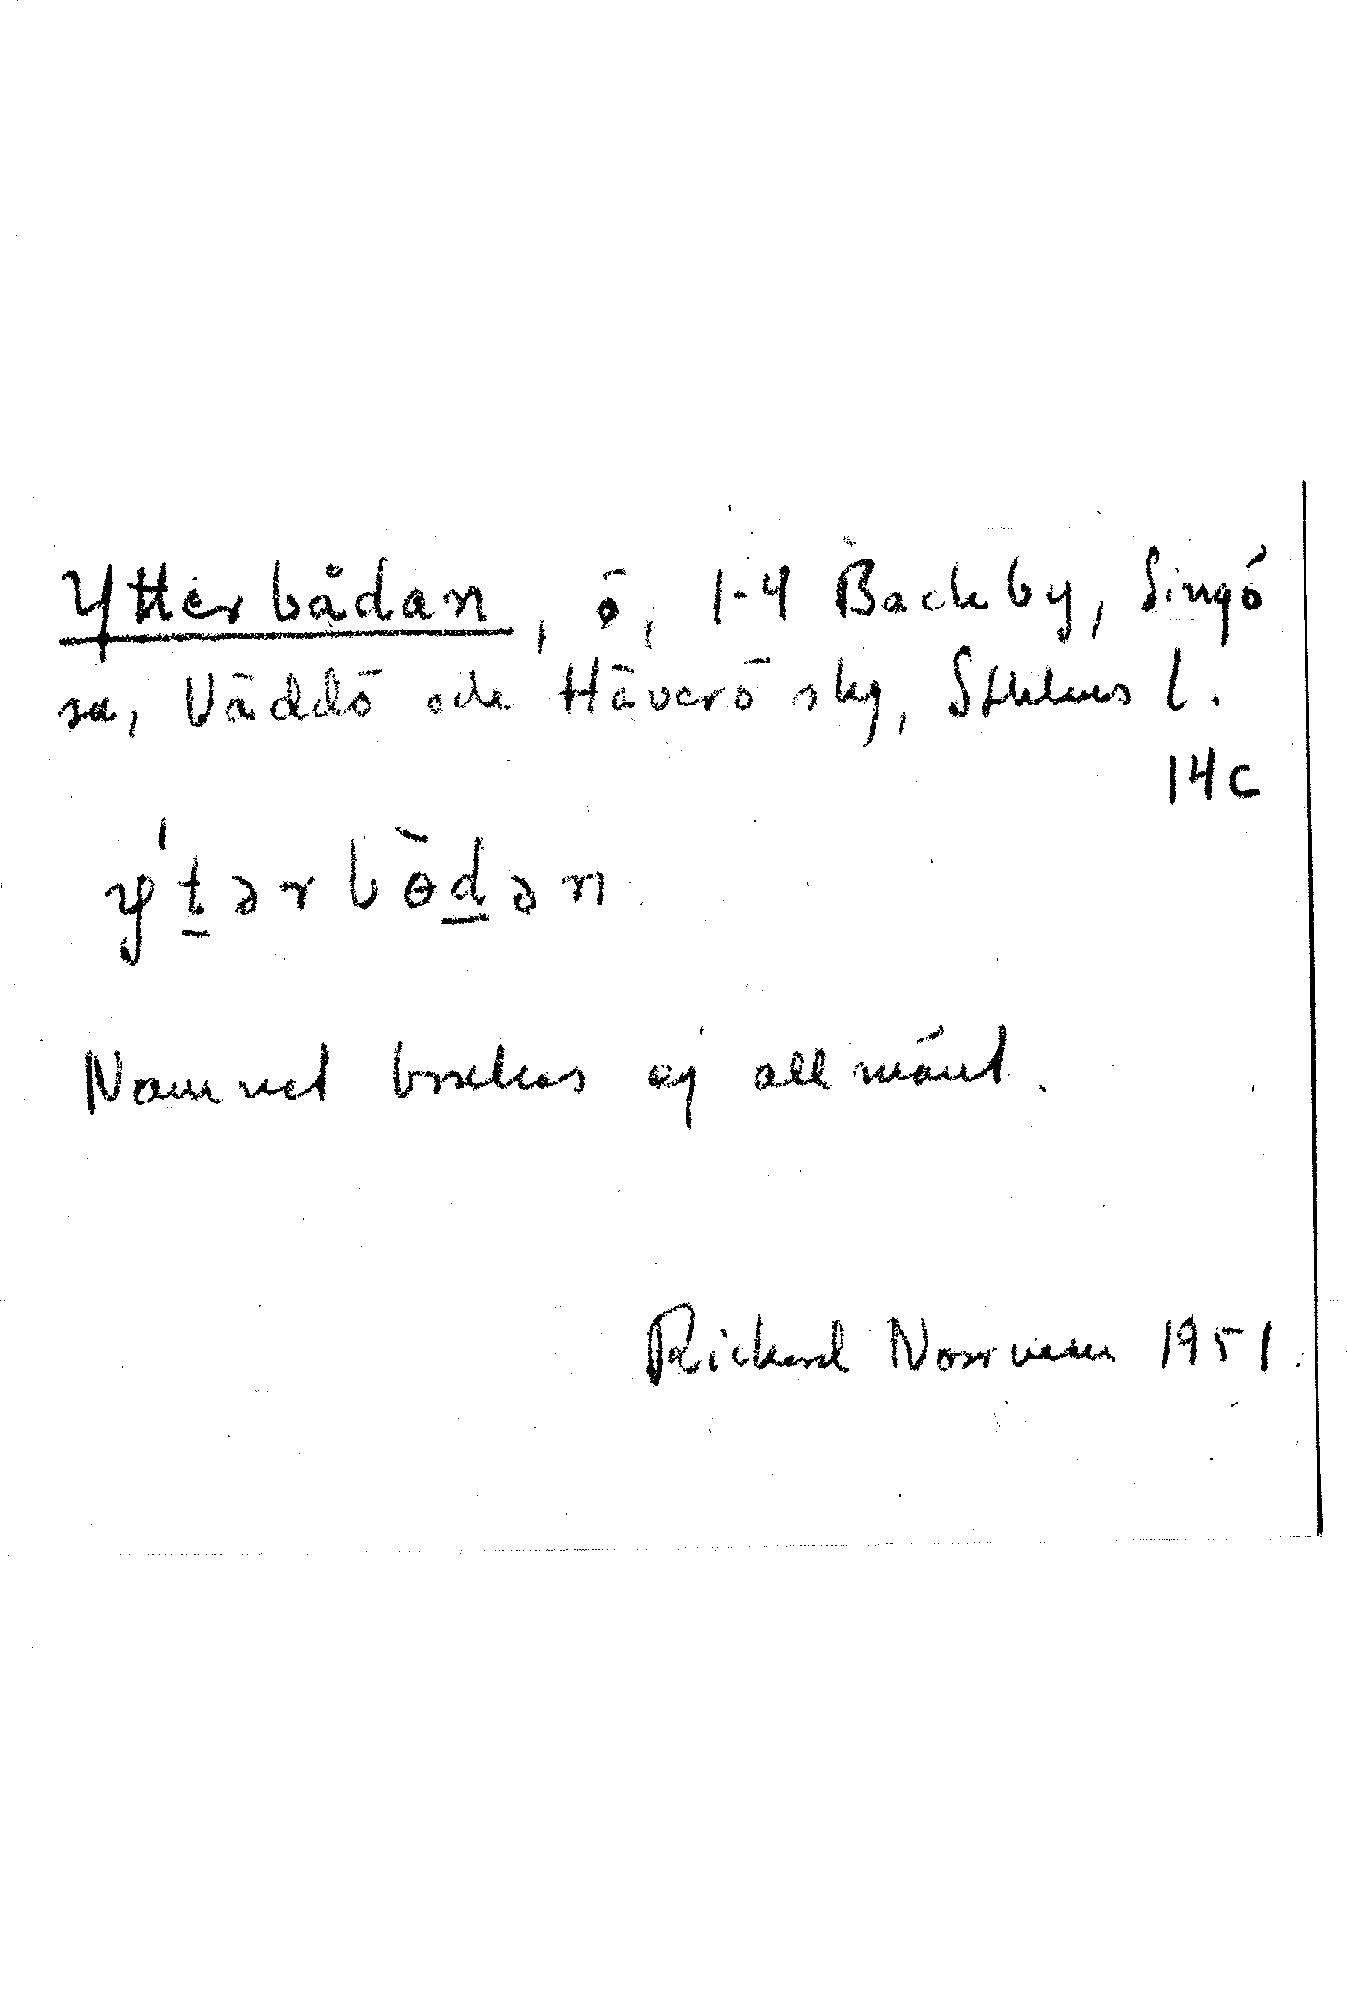 Ytterbådan, ö, 1-4 Backby, Singö
sn, Väddö och Häverö skg, Sthlms l.
14c
ýt̠ərbɵ̀d̠ən
Namnet brukas ej allmänt.
Rickard Norrman 1951.